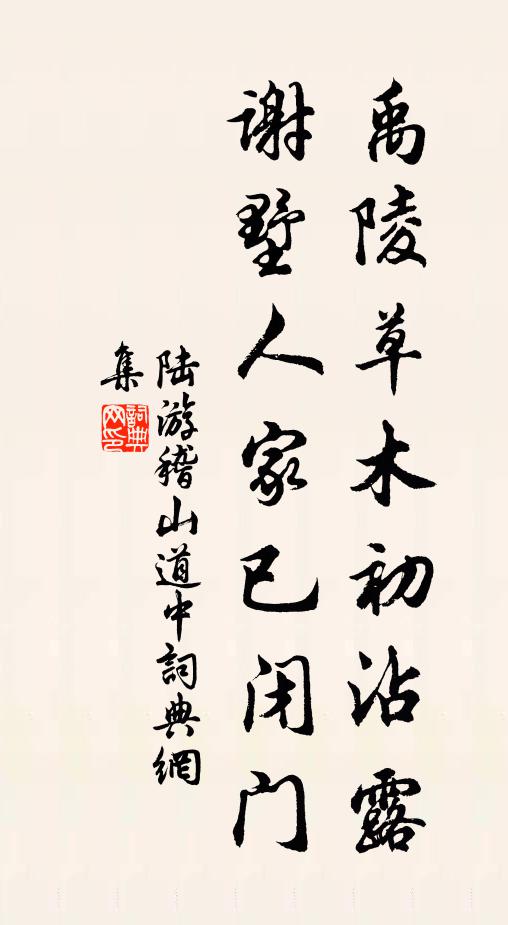 禹陵草木初沾露
謝墅人家已闭门
陆游稽山道中詞典網
集
詞典
网印